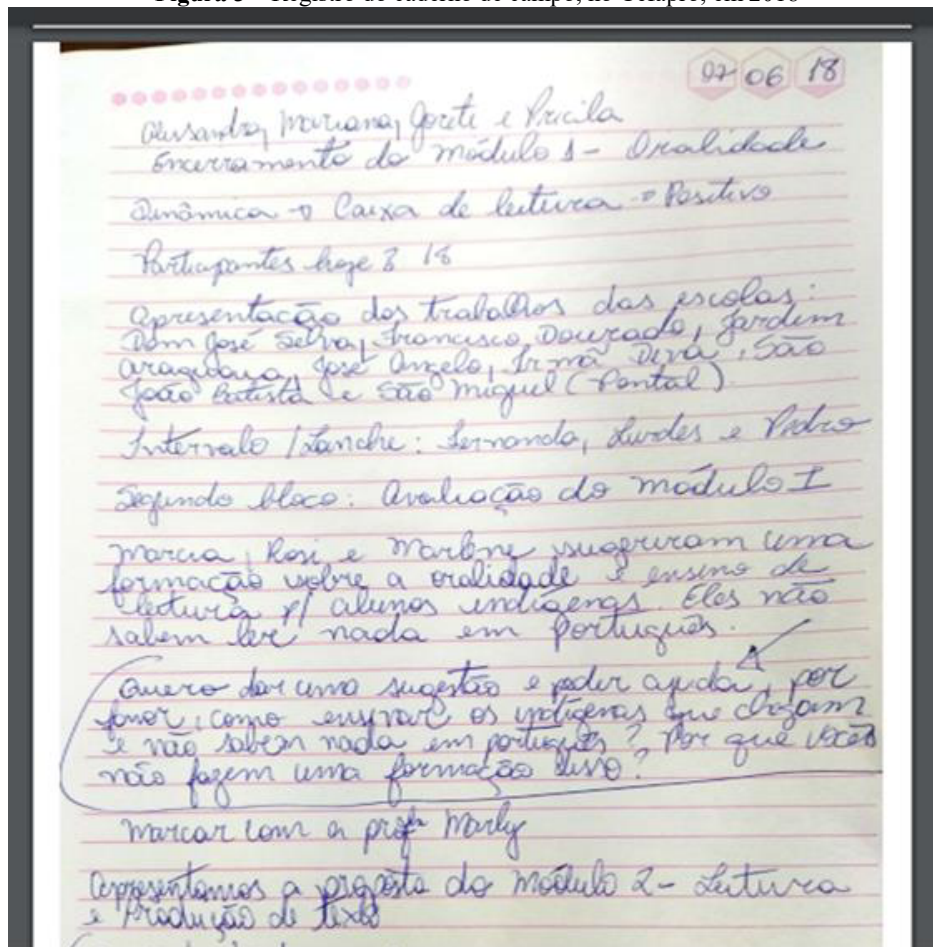 07 06 18
Alessandra, Mariana, Gorete e Pricila
Encerramento do módulo 1 - Oralidade
Dinâmica → Caixa de leitura → Positivo
Participantes hoje 18
Apresentação dos trabalhos das escolas:
Dom José Selva, Francisco Dourado, Jardim
Araguaia, José Angelo, Irmã Diva, São
João Batista e São Miguel (Pontal)
Intervalo / Lanche: Fernanda, Lurdes e Pedro
Segundo bloco: Avaliação do módulo I
Marcia, Rosi e Marlene sugeriram uma
formação sobre a oralidade e ensino de
leitura p/ alunos indígenas. Eles não
sabem ler nada em português.
Quero dar uma sugestão e pedir ajuda, por
favor, como ensinar os indígenas que chegam
e não sabem nada em português? Por que vocês
não fazem uma formação disso?
Marcar com a profª Marly
Apresentamos a proposta do Módulo 2 - Leitura
e Produção de texto